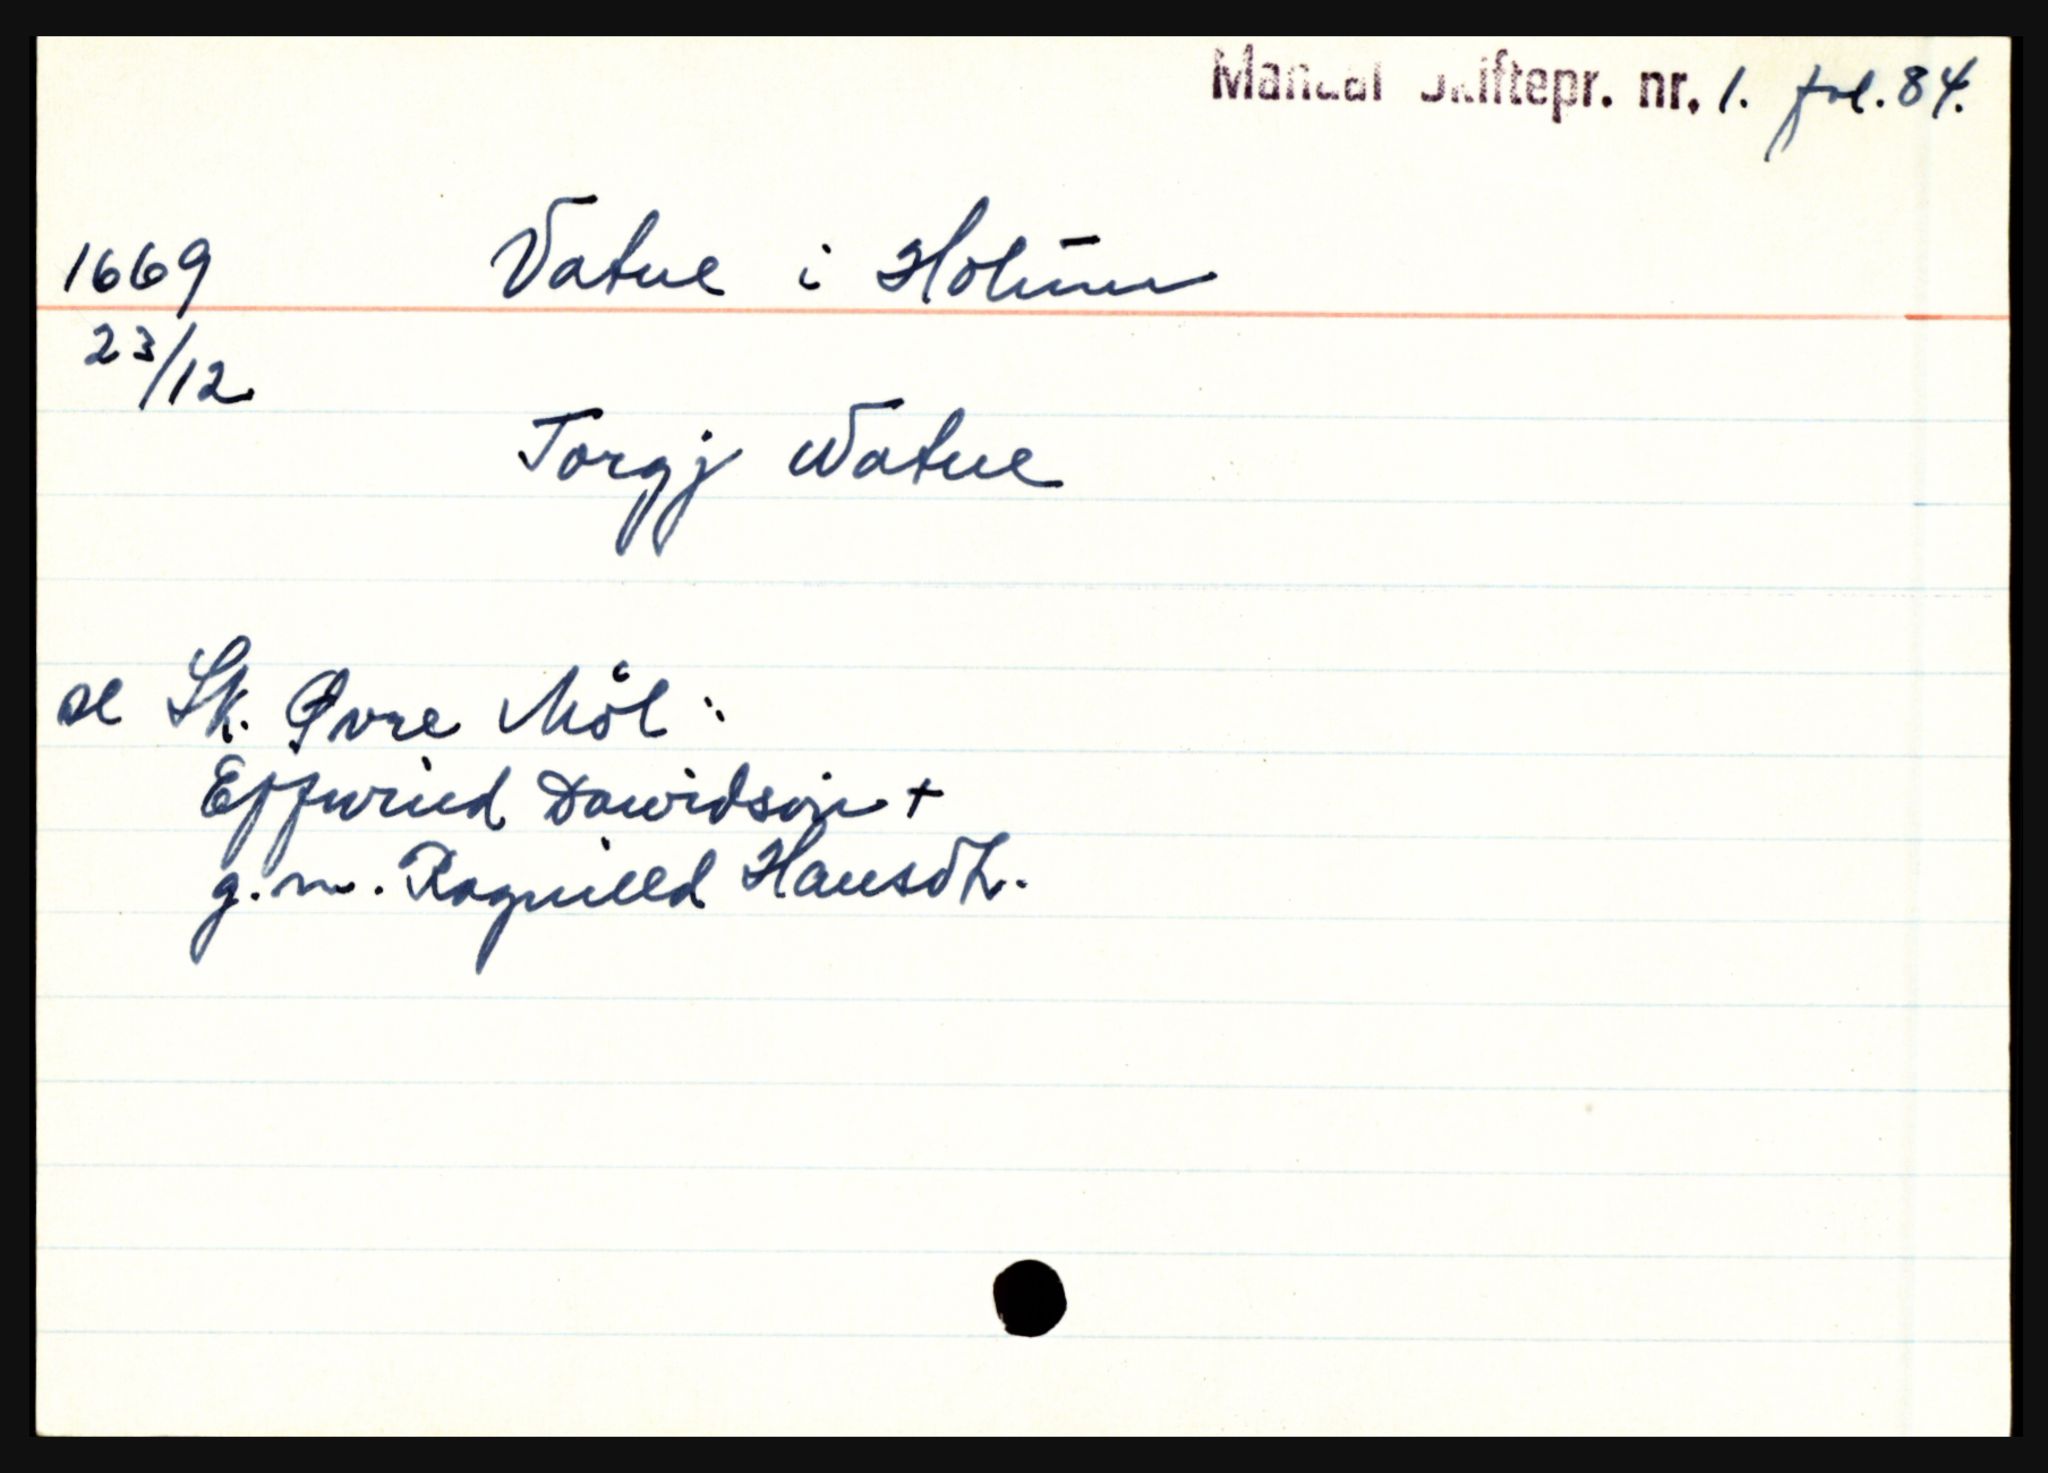 Mandal Skiftepr. nr. 1. fol. 84.
1669 Vatne i Holum
23/12
Torgj Watne
se Sk. Øvre Møl:
Effwind Dawidsøn +
g.m. Ragnilld Hansdtr.